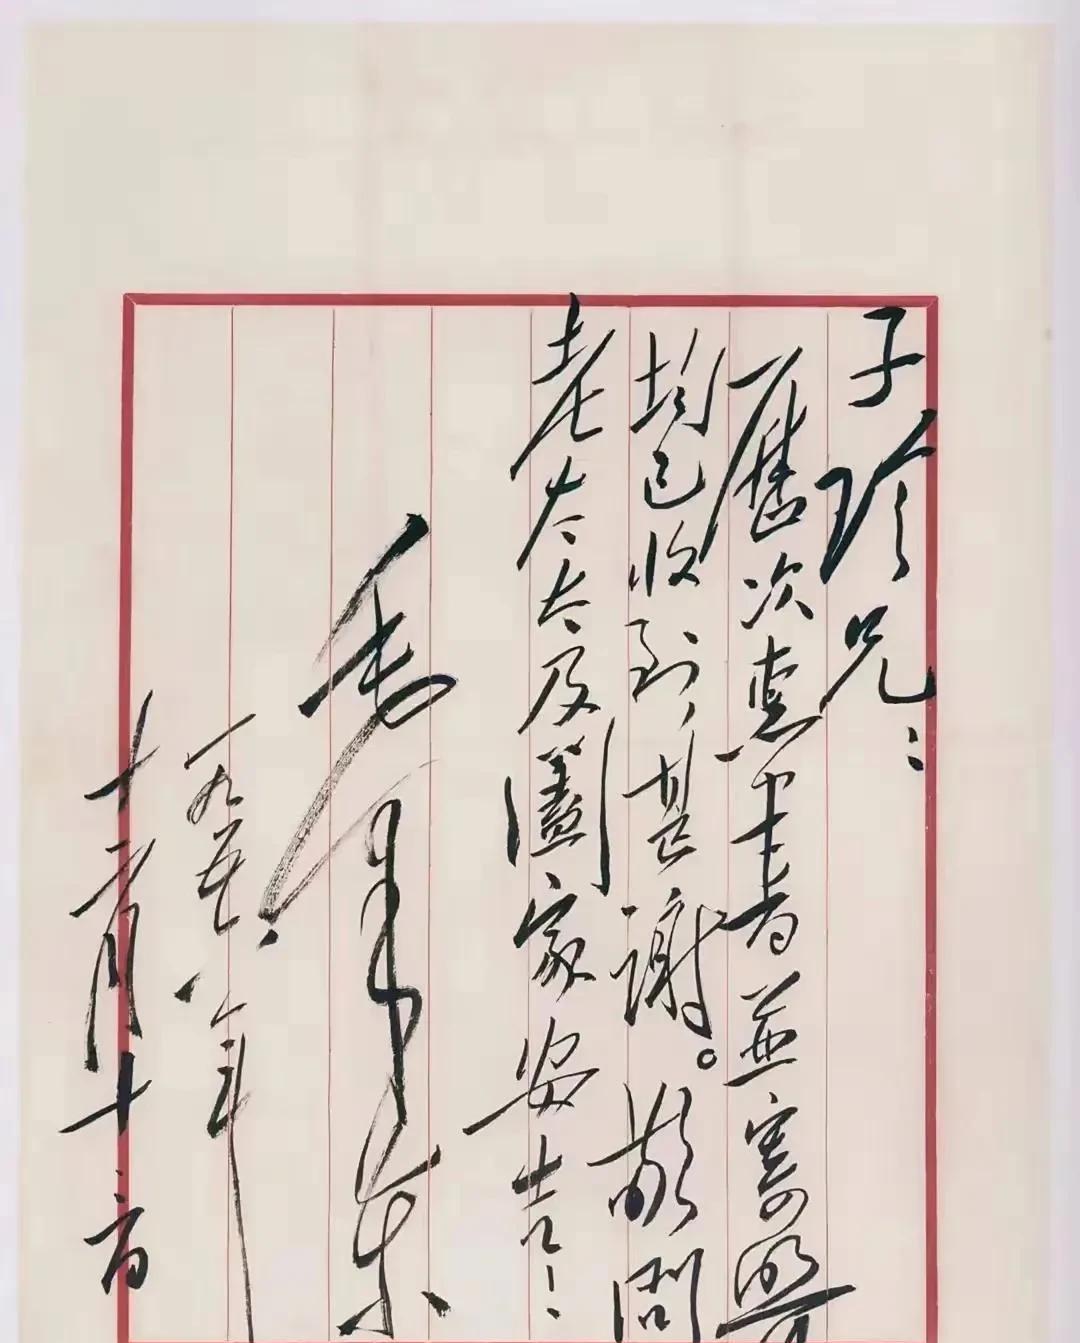 子珍兄：
歷次惠書並寄
均已收到，甚谢。敬问
老太太及闔家安吉！
毛泽东
一九五八年
十二月十二日